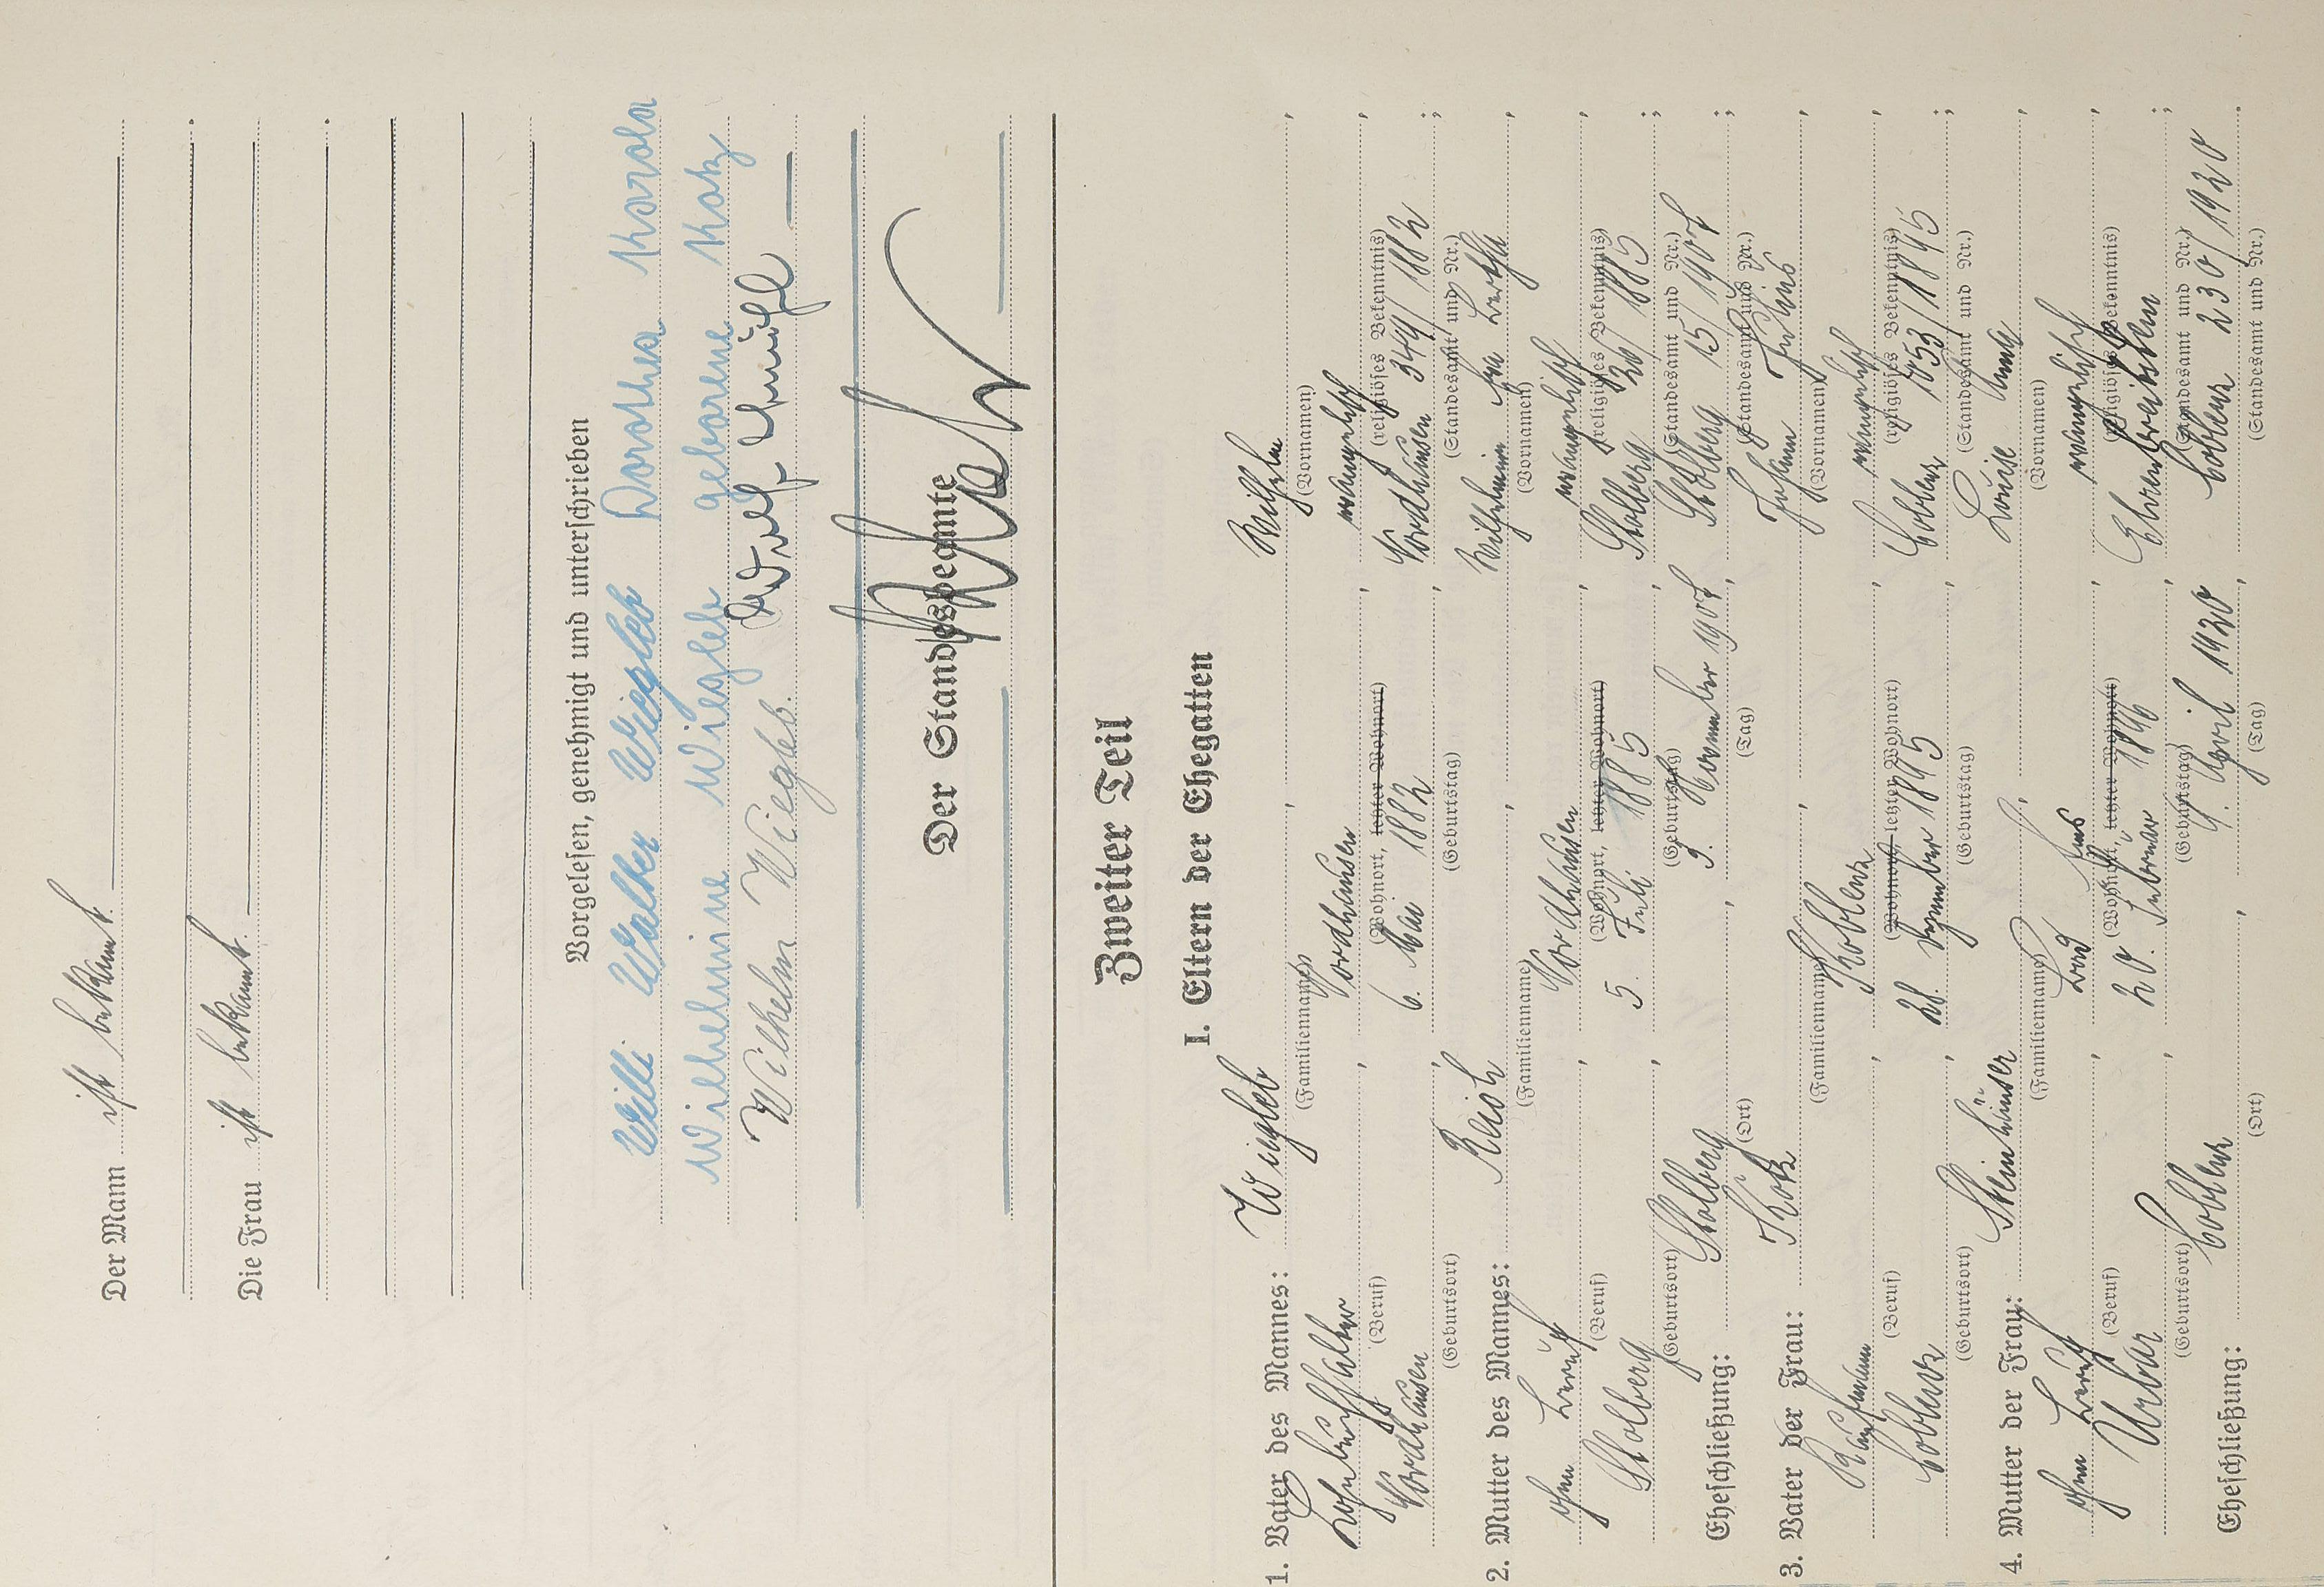 Der Mann ist bekannt.
Die Frau ist bekannt.
Vorgelesen, genehmigt und unterschrieben
Willi Walter Wiegleb Dorothea Karola
Wilhelmine Wiegleb geborene Kotz
Wilhelm Wiegleb. Adolf
Der Standesbeamte
Zweiter Teil
I. Eltern der Ehegatten
1. Vater des Mannes: Wiegleb Wilhelm
(Familienname) (Vornamen)
Nordhausen evangelisch
(Beruf) (Wohnort, letzter Wohnort) (religiöses Bekenntnis)
Nordhausen, 6. Mai 1882, Nordhausen 349/1882;
(Geburtsort) (Geburtstag) (Standesamt und Nr.)
2. Mutter des Mannes: Reich Wilhelmine Ida Bertha,
(Familienname) (Vornamen)
ohne Beruf, Nordhausen, evangelisch,
(Beruf) (Wohnort, letzter Wohnort) (religiöses Bekenntnis)
Stolberg, 5. Juli 1885, Stolberg 20/1885;
(Geburtsort) (Geburtstag) (Standesamt und Nr.)
Eheschließung: Stolberg, 9. November 1907, Stolberg 15/1907;
(Ort) (Tag) (Standesamt und Nr.)
3. Vater der Frau: Kotz, Johann Julius,
(Familienname) (Vornamen)
Kaufmann, Koblenz, evangelisch,
(Beruf) (Wohnort, letzter Wohnort) (religiöses Bekenntnis)
Coblenz, 28. Dezember 1895, Coblenz 1053/1895;
(Geburtsort) (Geburtstag) (Standesamt und Nr.)
4. Mutter der Frau: Steinhäuser, Louise Anna,
(Familienname) (Vornamen)
ohne Beruf, Bad Ems, evangelisch,
(Beruf) (Wohnort, letzter Wohnort) (religiöses Bekenntnis)
Urbar, 20. Februar 1896, Ehrenbreitstein;
(Geburtsort) (Geburtstag) (Standesamt und Nr.)
Eheschließung: Coblenz, 9. April 1920, Coblenz 230/1920.
(Ort) (Tag) (Standesamt und Nr.)